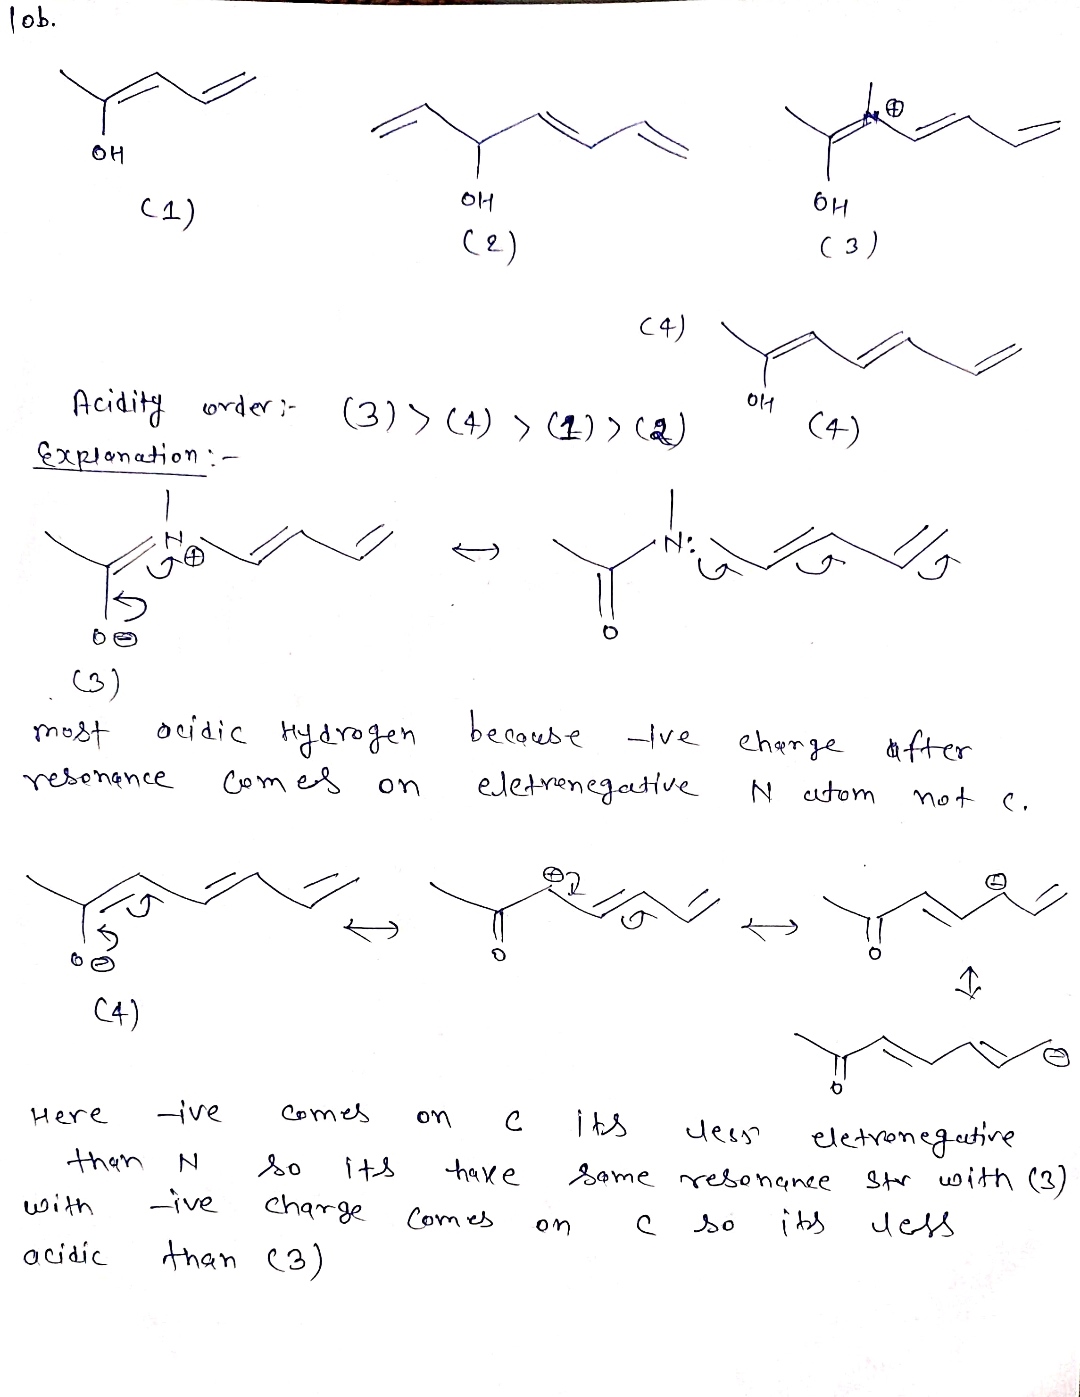 10b.
OH
(1)
OH
(2)
N ⊕
OH
(3)
(4)
OH
(4)
Acidity order :- (3) > (4) > (1) > (2)
Explanation :-
N ⊕
O ⊖
↔
N:
O
(3)
most acidic Hydrogen because -ive charge after
resonance comes on eletronegative N atom not C.
O ⊖
↔
⊕
O
↔
⊖
O
(4)
↕
⊖
O
Here -ive comes on C its less eletronegative
than N so its have same resonance str with (3)
with -ive charge comes on C so its less
acidic than (3)